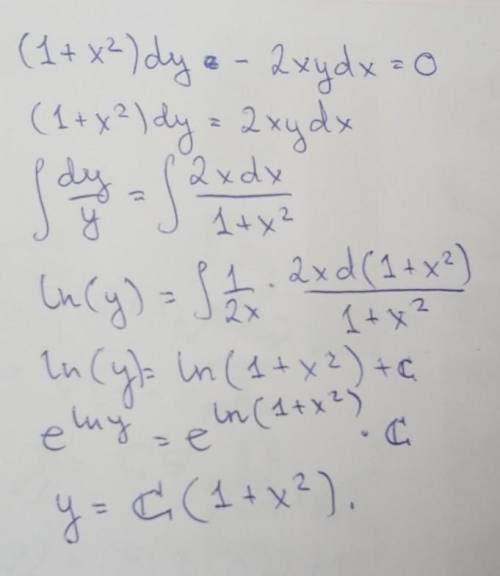 (1+x²)dy - 2xydx=0
(1+x²)dy=2xydx
∫ dy/y = ∫ 2xdx/1+x²
ln(y) = ∫ 1/2x · 2xd(1+x²)/1+x²
ln(y)= ln(1+x²)+C
e^lny = e^ln(1+x²) · C
y= C(1+x²).